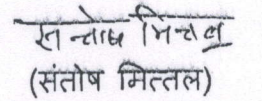 सन्तोष मित्तल
(संतोष मित्तल)